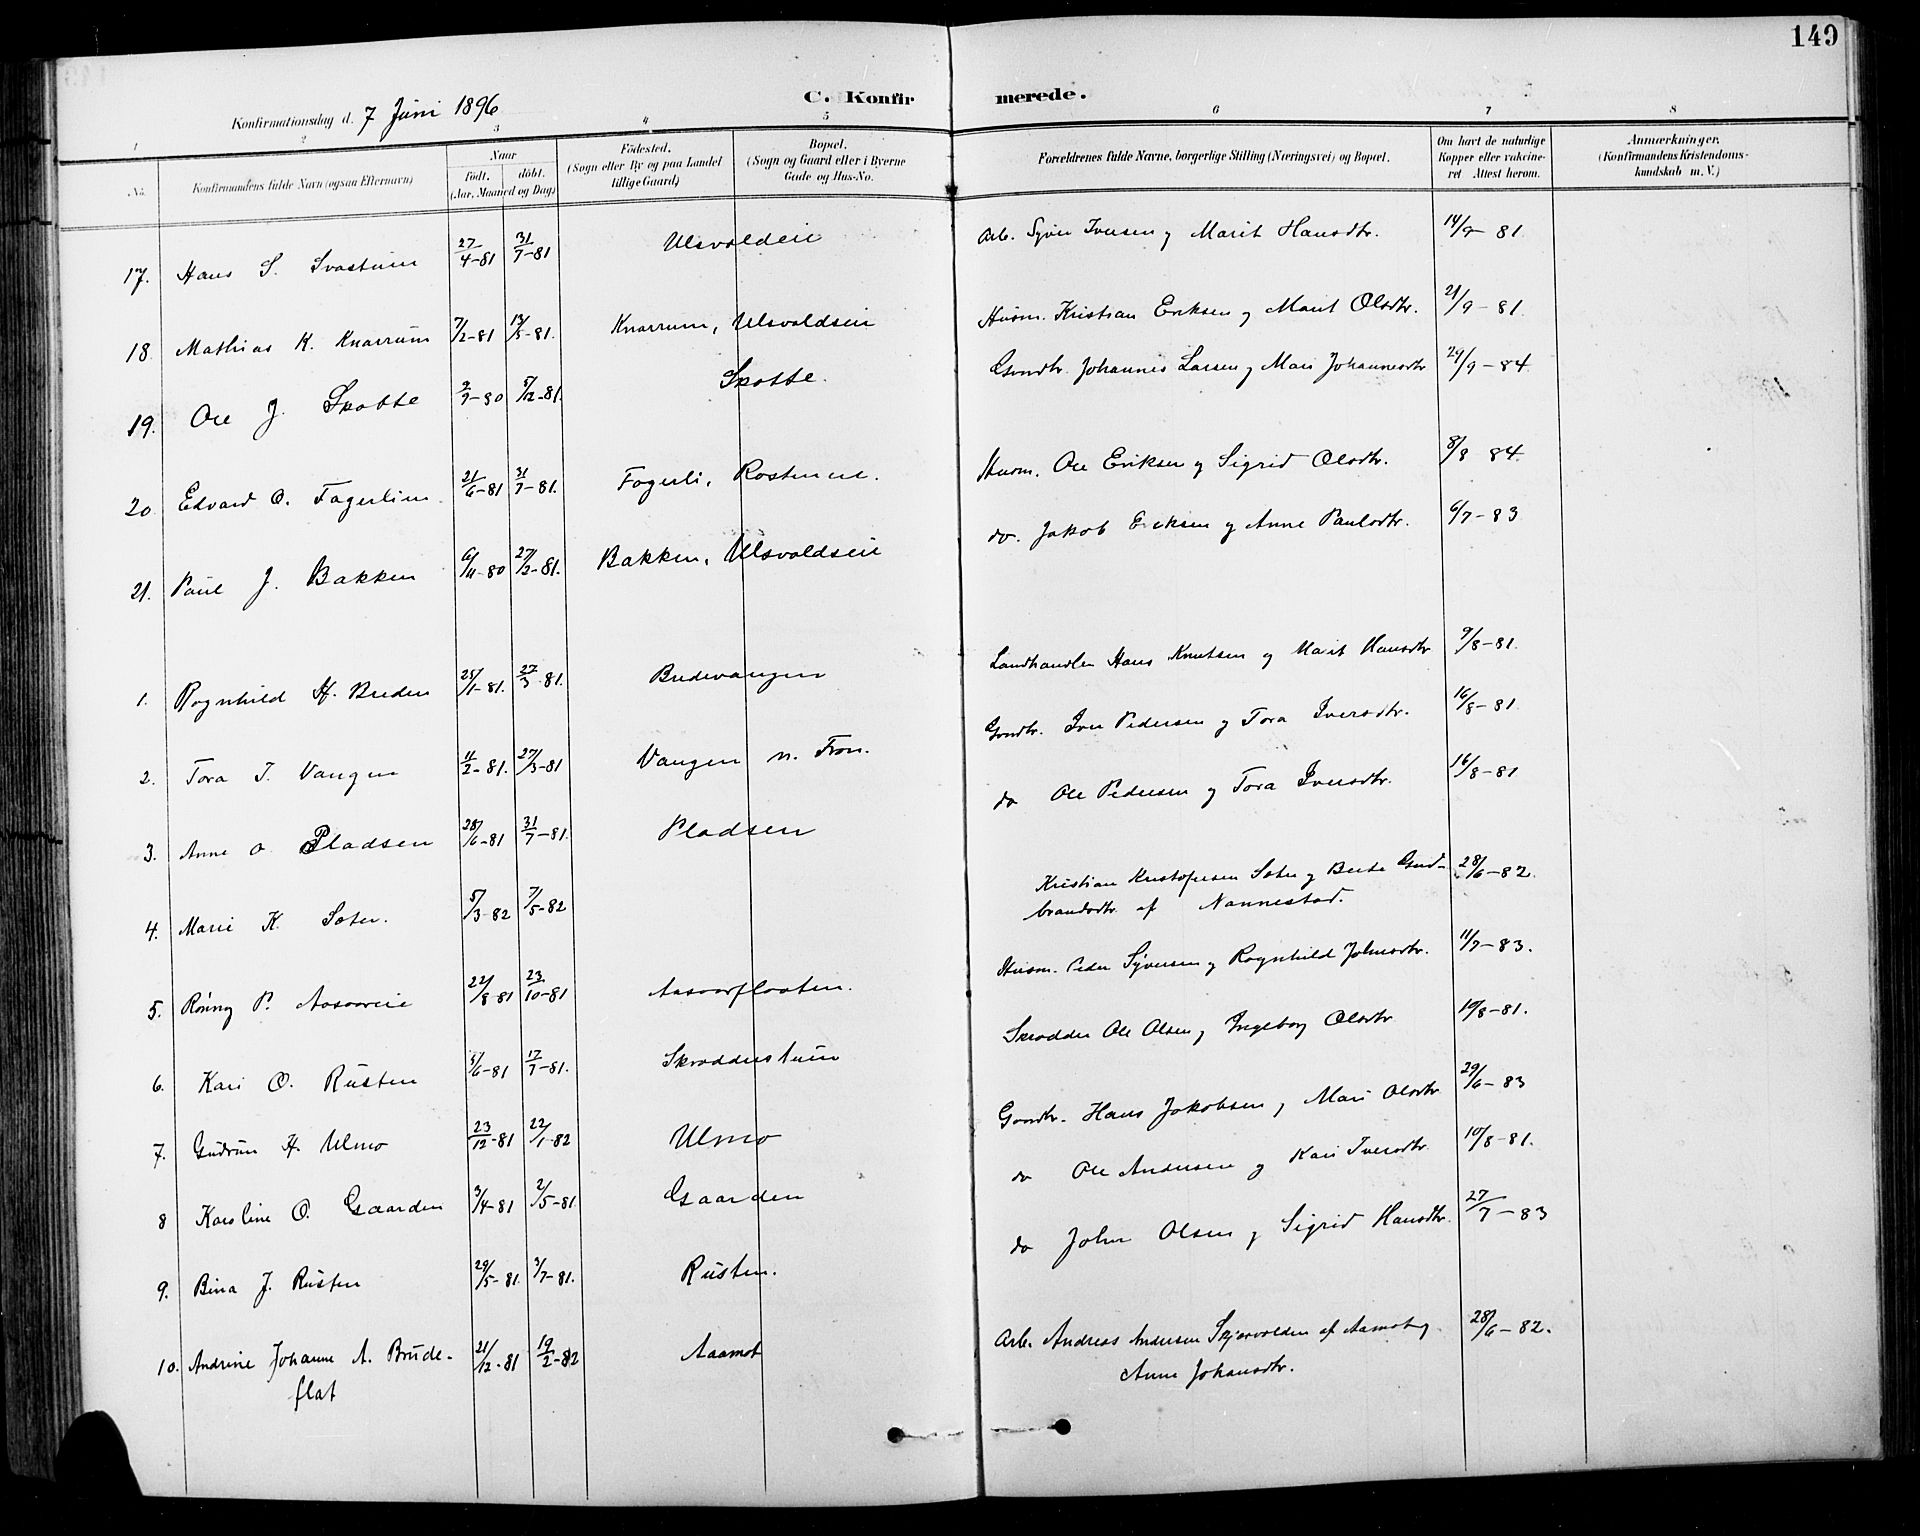 149
C. Konfirmerede.
Konfirmationsdag d. 7 Juni 1896
1 2 3 4 5 6 7 8
No. Konfirmandens fulde Navn (ogsaa Efternavn) Naar født. døbt. (Aar, Maaned og Dag) Fødested. (Sogn eller By og paa Landet tillige Gaard) Bopæl. (Sogn og Gaard eller i Byerne Gade og Hus-No. Forældrenes fulde Navne, borgerlige Stilling (Næringsvei) og Bopæl. Om havt de naturlige Kopper eller vakcineret. Attest herom. Anmærkninger. (Konfirmandens Kristendomskundskab m. V.)
17. Hans S. 27/4-81 31/7-81 Ulsvoldeie Arb. Syver Iversen og Marit Hansdtr. 14/9-81
18. Mathias K. Knarrum 7/2-81 13/5-81. Knarrum, Ulsvoldseie Husm. Kristian Eriksen og Marit Olsdtr. 21/9-81
19. Ole J. Skotte 5/12-81. Skotte. Grndbr. Johannes Larsen og Mari Johannesdtr 29/9-84
20 Edvard O. Fagerlien 21/6-81 31/7-81. Fagerli, Husm. Ole Eriksen og Sigrid Olsdtr. 8/8 84.
21. Paul J. Bakken 6/11-80 27/2-81. Bakken, Ulsvoldseie do. Jakob Eriksen og Anne Paulsdtr. 6/7-83
1. Ragnhild H. Breden 25/1-81. 27/3-81. Bredevangen Landhandler Hans Knutsen og Marit Hansdtr 9/8-81.
2. Tora I. Vangen 11/2-81. 27/3-81 Vangen n. Fron. Grndbr. Iver Pedersen og Tora Iversdtr. 16/8-81.
3. Anne O Pladsen 28/6-81 31/7-81. Pladsen do Ole Pedersen og Tora Iversdtr. 16/8-81
4. Marie K. Sæter. 5/3-82 7/5-82 Kristian Kristofersen Sæter og Berte Gud-
brandsdtr. af Nannestad. 28/6-82.
5. Rønnog P. Aasaareie 22/8-81 23/10-81 Aasaarflaaten. Husm. Peder Syversen og Ragnhild Johnsdtr. 11/7-83.
6. Kari O. Rusten 5/6-81 17/7-81. Skrædderstuen Skrædder Ole Olsen og Ingeborg Olsdtr 19/8-81.
7. Gudrun H. Ulmo 23/12-81 22/1-82 Ulmo Grndbr. Hans Jakobsen og Mari Olsdtr 29/6-83
8 Karoline O. Gaarden 3/4-81 2/5-81. Gaarden do Ole Andersen og Kari Iversdtr. 10/8-81.
9. Bina J. Rusten 29/5-81. 3/7-81. Rusten. do John Olsen og Sigrid Hansdtr. 27/7-83
10. Andrine Johanne A. Brude-
flat 21/12-81 19/2-82 Aamot Arb. Andreas Andersen Skjærvolden af Aamot og
Anne Johansdtr. 28/6-82.